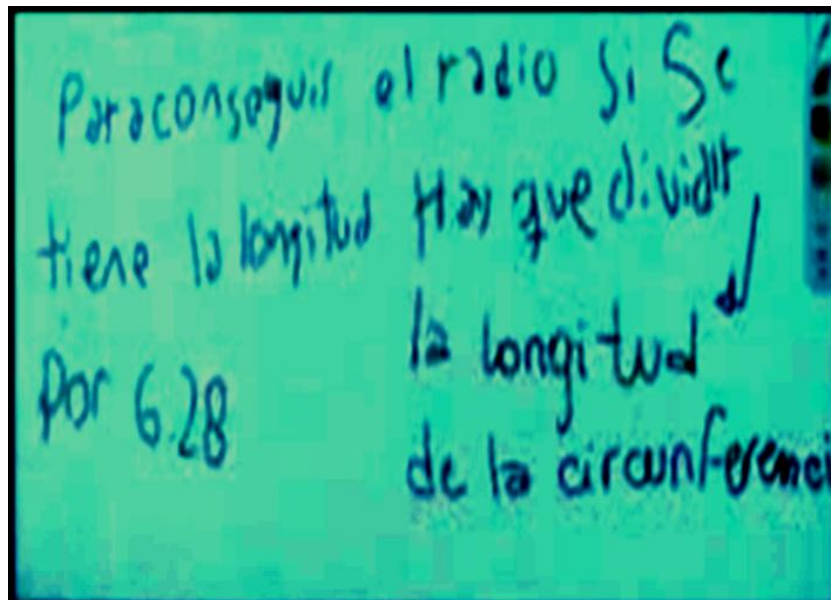 Para conseguir el radio si se
tiene la longitud Hay que dividir
la longitud
de la circunferenci
por 6.28